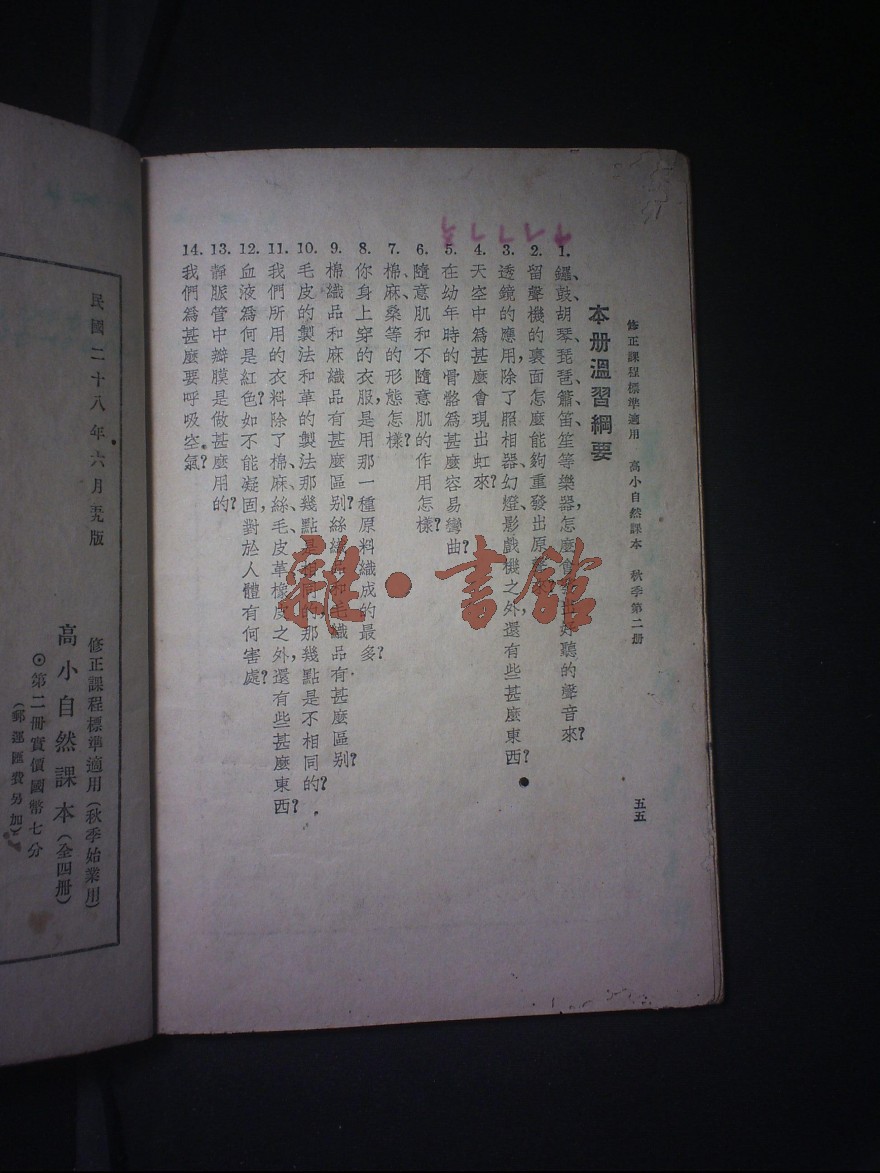 修正課程標準適用　高小自然課本　秋季第二册
五五
本册溫習綱要
1. 鑼、鼓、胡琴、琵琶、簫、笛、笙等樂器，怎麼會發出好聽的聲音來？
2. 留聲機的裏面怎麼能夠重發出原
3. 透鏡的應用，除了照相器、幻燈、影戲機之外還有些甚麼東西？
4. 天空中爲甚麼會現出虹來？
5. 在幼年時的骨骼爲甚麼容易彎曲？
6. 隨意肌和不隨意肌的作用怎樣？
7. 棉、麻、桑等的形態怎樣？
8. 你身上穿的衣服，是用那一種原料織成的最多？
9. 棉織品和麻織品有甚麼區别？絲織品和毛織品有甚麼區别？
10. 毛皮的製法和革的製法那幾點是相同的，那幾點是不相同的？
11. 我們所用的衣料除了棉、麻、絲、毛、皮革、橡皮之外，還有些甚麼東西？
12. 血液爲何是紅色？如不能凝固，對於人體有何害處？
13. 靜脈管中瓣膜是做甚麼用的？
14. 我們爲甚麼要呼吸空氣？
民國二十八年六月九版
修正課程標準適用（秋季始業用）
高小自然課本（全四册）
⊙第二册實價國幣七分
（郵運匯費另加）
雜·書館